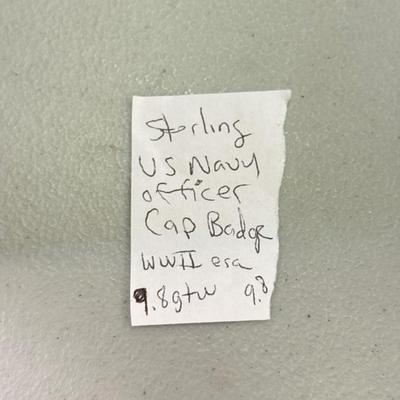 Sterling
US Navy
officer
Cap Badge
WWII era
9.8gtw 9.8